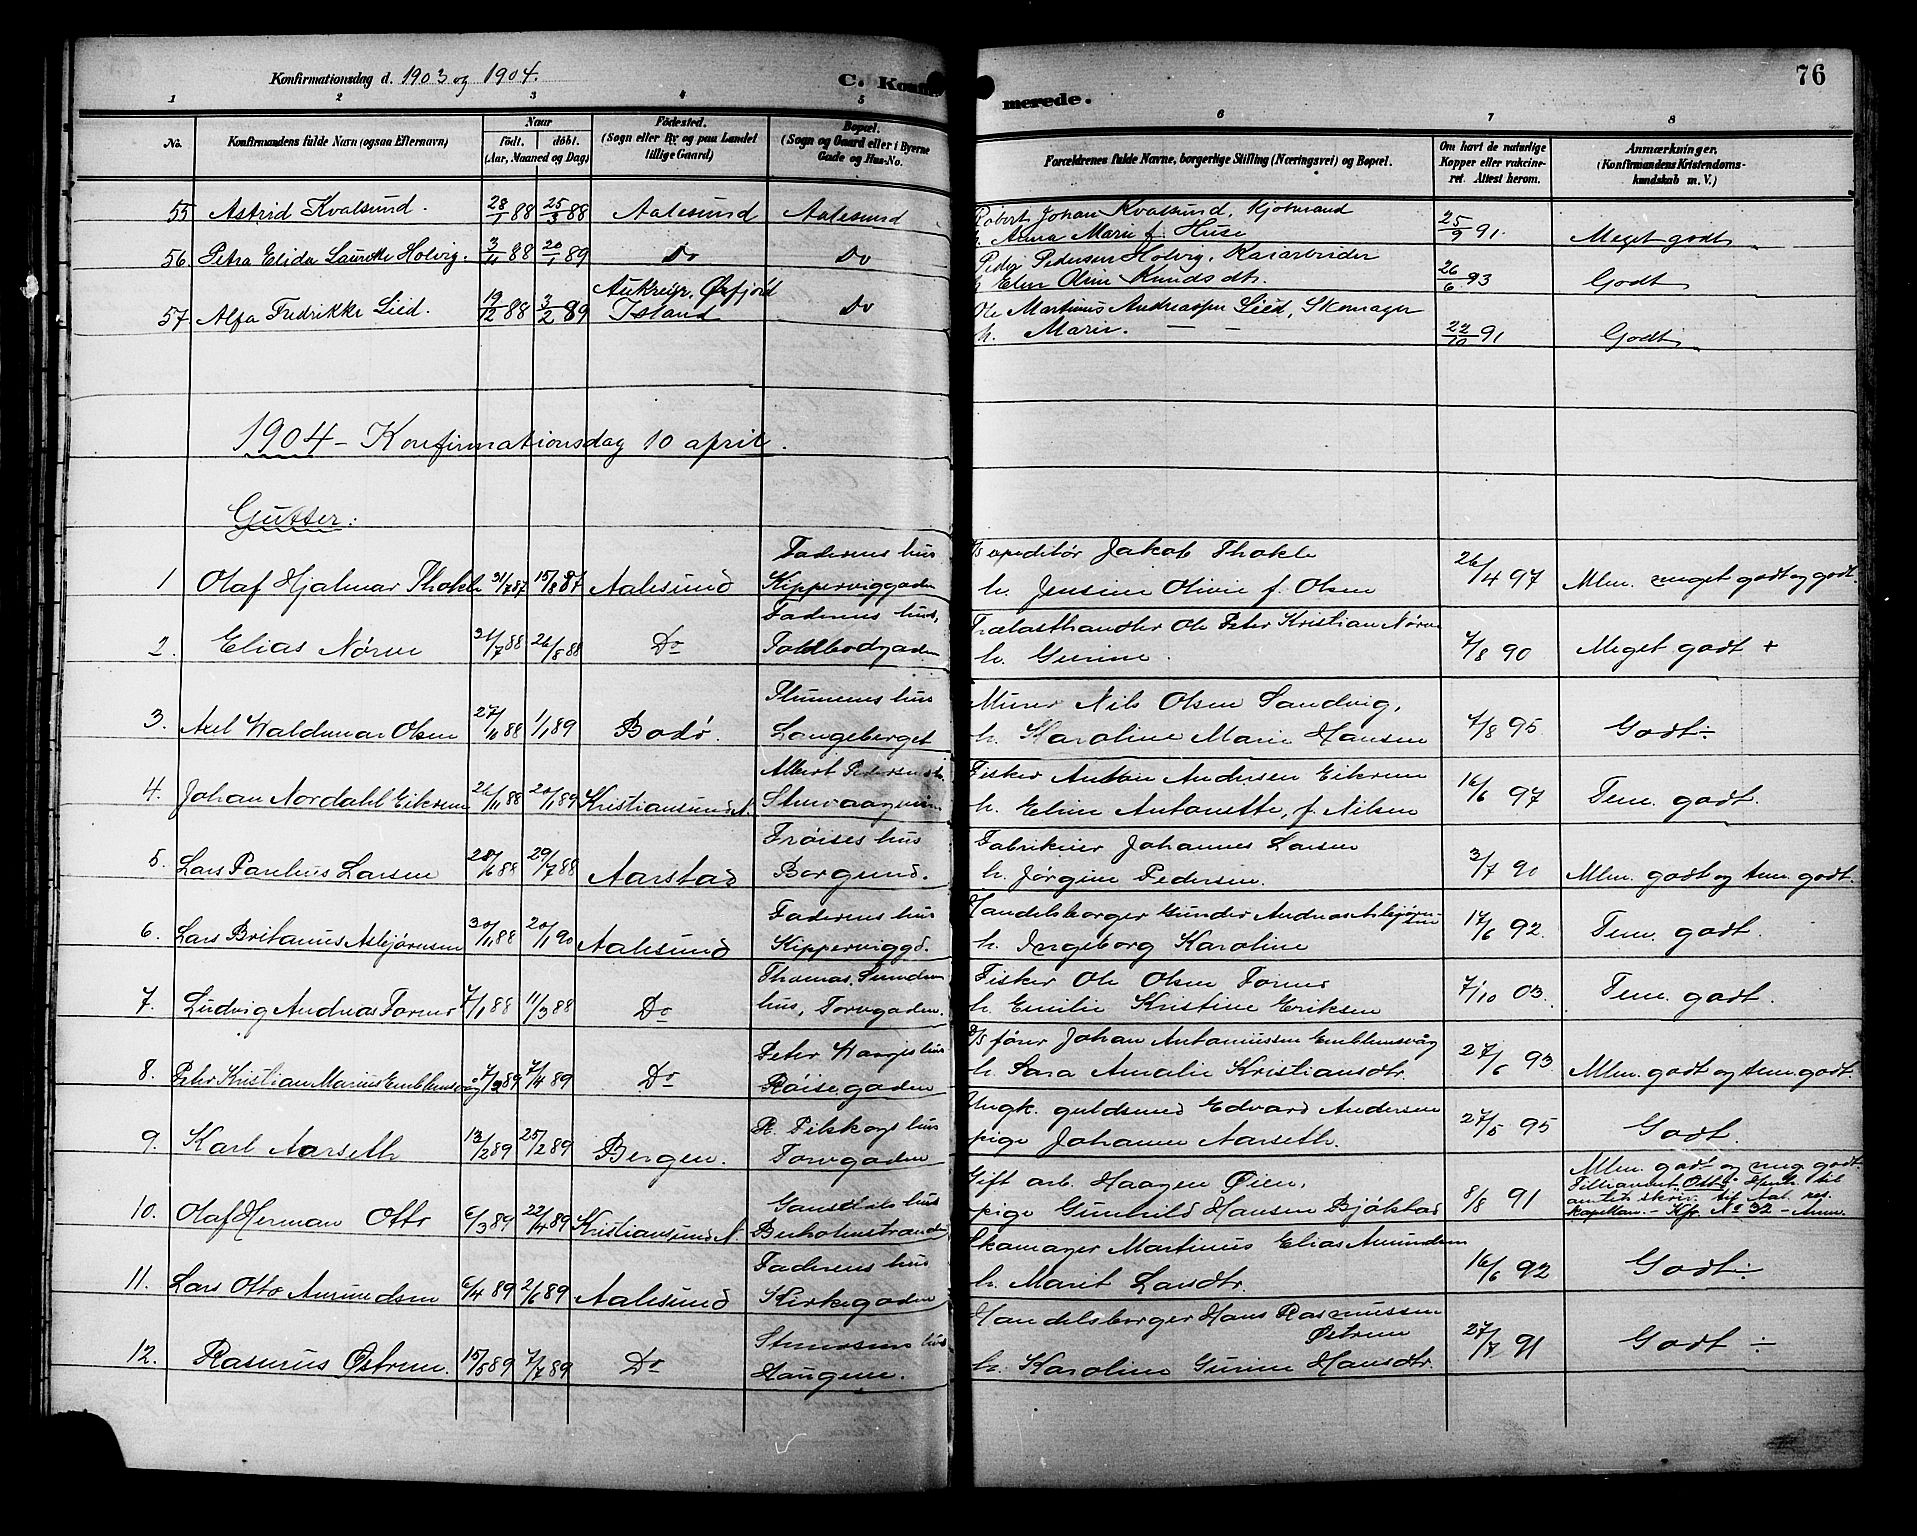 Konfirmationsdag d. 1903 og 1904.
C. Konfir
merede.
76
1 2 3 4 5 6 7 8
No. Konfirmandens fulde Navn (ogsaa Efternavn) Naar født. døbt. (Aar, Maaned og Dag) Fødested. (Sogn eller By og paa Landet tillige Gaard) Bopæl. (Sogn og Gaard eller i Byerne Gade og Hus-No. Forældrenes fulde Navne, borgerlige Stilling (Næringsvei) og Bopæl. Om havt de naturlige Kopper eller vakcineret. Attest herom. Anmærkninger. (Konfirmandens Kristendomskundskab m. V.)
55 Astrid Kvalsund. 28/1 88 25/3 88 Aalesund Aalesund Robert Johan Kvalsund, Kjøbmand
h. Anna Marie f. Huse 25/9 91. Meget godt
56. Petra Elida Laurette Holvig. 3/11 88 20/1 89 Do Do Peder Pedersen Holvig, Kaiarbeider
h Eline Knudsdtr. 26/6 93 Godt
57. Alfa Fredrikke Lied. 19/12 88 3/2 89 Øxfjord
Island Do Ole Martinus Andreassen Lied, Skomager
h. Marie. — — 22/10 91 Godt
1904 – Konfirmationsdag 10 april.
Gutter:
1 Olaf Hjalmar Thokle 31/7 87 15/8 87 Aalesund Faderens hus
Kipperviggaden Expeditør Jakob Thokle
h. Jensine Olivie f. Olsen 26/4 97 Mlm. meget godt og godt
2. Elias Nørve 31/7 88 26/8 88 Do Faderens hus,
Toldbodgaden Trælasthandler Ole Peter Kristian Nørve
h. Gurine. 7/8 90 Meget godt +
3. Axel Waldemar Olsen 27/11 88 1/1 89 Bodø. hus
Langeberget Murer Nils Olsen Sandvig,
h. Karoline Marie Hansen 7/8 95. Godt ÷
4. Johan Nordahl Eikrem 21/11 88 20/1 89 Kristiansund N. Albert Pedersens h.
Fisker Anton Andersen Eikrem
h. Eline Antonette, f. Nilsen 16/6 97 Tem. godt.
5. Lars Larsen 28/6 88 29/7 88 Aarstad Frøises hus
Borgund. Fabrikeier Johannes Larsen
h. Jørgine Pedersen. 3/7 90 Mlm. godt og tem. godt.
6. Lars Britanus Asbjørnsen 30/11 88 20/1 90 Aalesund Faderens hus
Kipperviggd. Handelsborger Gunder Andreas Asbjørnsen
h. Ingeborg Karoline 17/6 92. Tem. godt.
7. Ludvig Andreas 7/1 88 11/3 88 Do Thomas
hus, Torvgaden. Fisker Ole Olsen
h. Emilie Kristine Eriksen 7/10 03. Tem. godt.
8. Peter Kristian Marius Emblemsvåg 7/2 89 7/4 89 Do Peter hus
Røisegaden D/S fører Johan Antoniussen Emblemsvåg
h. Sara Amalie Kristiansdtr. 27/6 93 Mlm. godt og tem. godt.
9. Karl Aarseth 13/2 89 25/2 89 Bergen. R. hus
Torvgaden Ungk. guldsmed Edvard Andersen
pige Johanne Aarseth. 27/5 95 Godt.
10. Olaf Herman Otto 6/3 89 22/4 89 Kristiansund N. hus
Gift arb. Haagen Øien,
pige Gunhild Hansen Bjøkstad 8/8 91 Mlm. godt og meg. godt.
til Aal. res.
kapellan. – Kfr No 32 – Anm.
11. Lars Otto Amundsen 6/4 89 2/6 89 Aalesund Faderens hus
Kirkegaden Skomager Martinus Elias Amundsen
h. Marit Larsdtr. 16/6 92 Godt ÷
12. Rasmus Østrem. 15/5 89 7/7 89 Do hus
Haugene. Handelsborger Hans Rasmussen
Østrem
h. Karoline Gurine Hansdtr. 27/7 91 Godt ÷